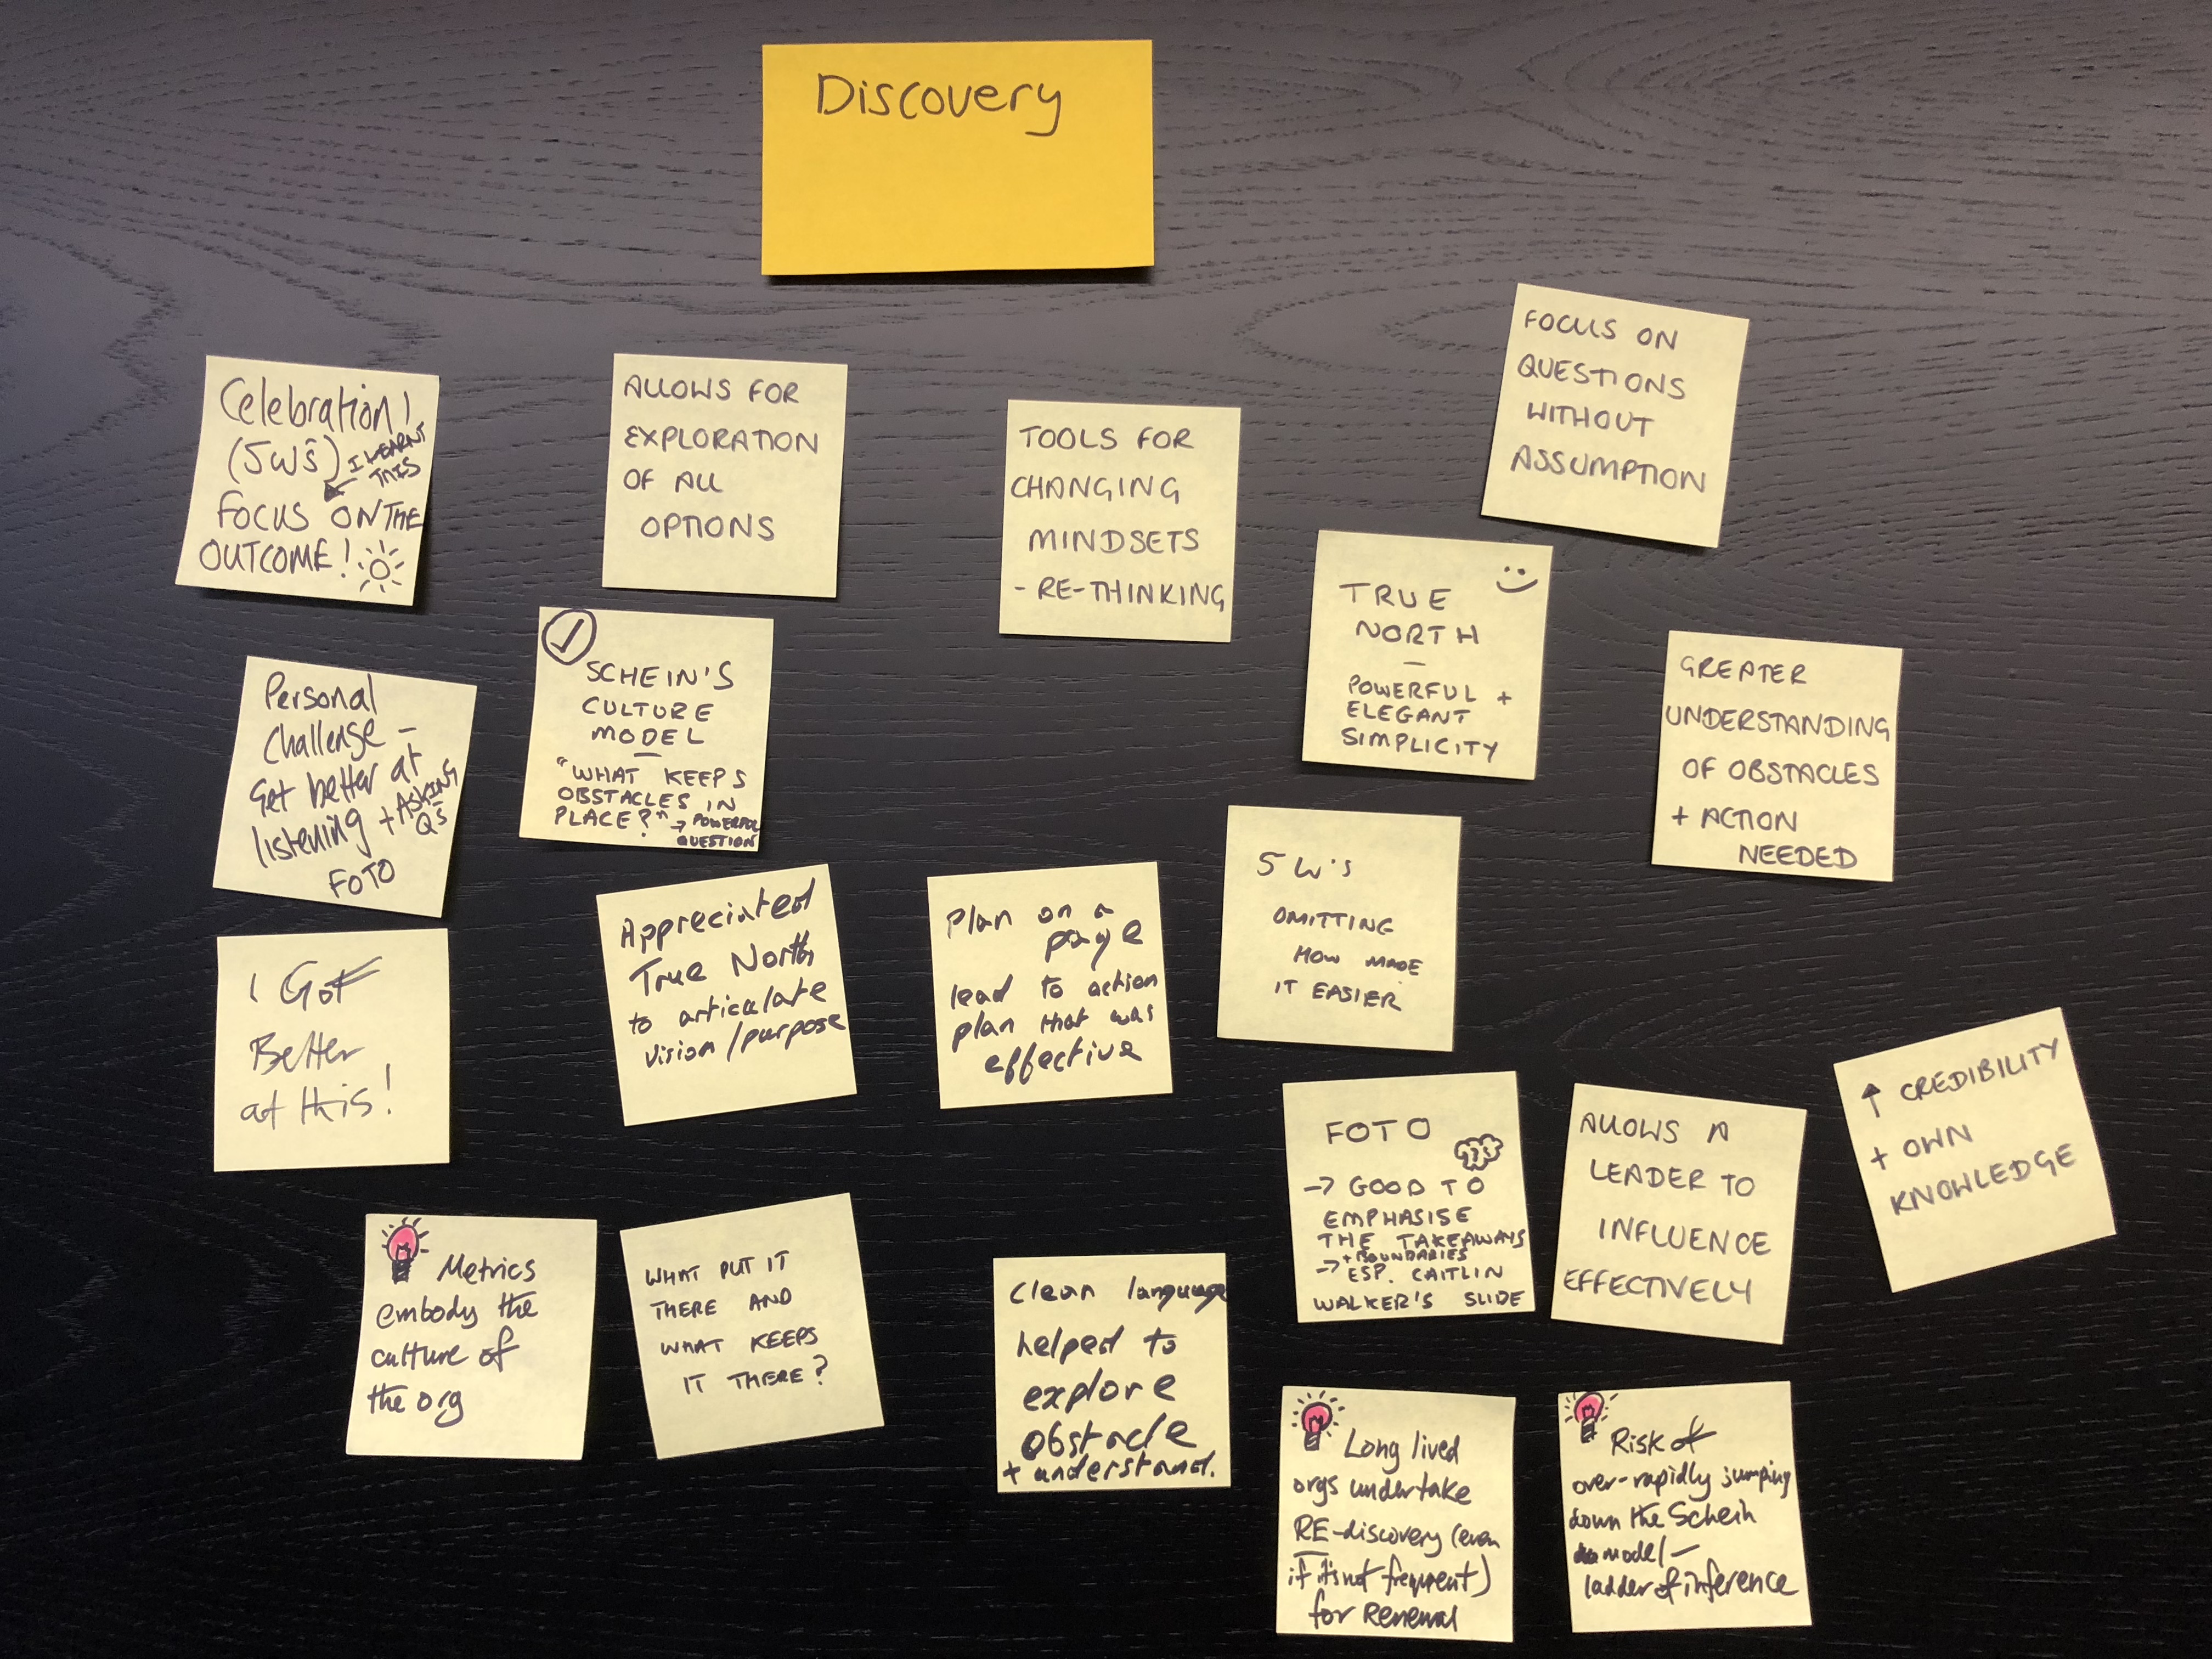 Discovery
Celebration!
(5W's) I LEARNT
THIS
FOCUS ON THE
OUTCOME!
ALLOWS FOR
EXPLORATION
OF ALL
OPTIONS
TOOLS FOR
CHANGING
MINDSETS
- RE-THINKING
FOCUS ON
QUESTIONS
WITHOUT
ASSUMPTION
Personal
Challenge -
Get better at
listening + ASKING
Q's
FOTO
SCHEIN'S
CULTURE
MODEL
-
"WHAT KEEPS
OBSTACLES IN
PLACE?" → POWERFUL
QUESTION
TRUE
NORTH
-
POWERFUL +
ELEGANT
SIMPLICITY
GREATER
UNDERSTANDING
OF OBSTACLES
+ ACTION
NEEDED
I Got
Better
at this!
Appreciated
True North
to articulate
vision/purpose
Plan on a
page
lead to action
plan that was
effective
5 W's
OMITTING
HOW MADE
IT EASIER
FOTO
→ GOOD TO
EMPHASISE
THE TAKEAWAYS
+ BOUNDARIES
→ ESP. CAITLIN
WALKER'S SLIDE
ALLOWS A
LEADER TO
INFLUENCE
EFFECTIVELY
↑ CREDIBILITY
+ OWN
KNOWLEDGE
Metrics
embody the
culture of
the org
WHAT PUT IT
THERE AND
WHAT KEEPS
IT THERE?
Clean language
helped to
explore
obstacle
+ understand.
Long lived
orgs undertake
RE-discovery (even
if it's not frequent)
for Renewal
Risk of
over-rapidly jumping
down the Schein
model -
ladder of inference